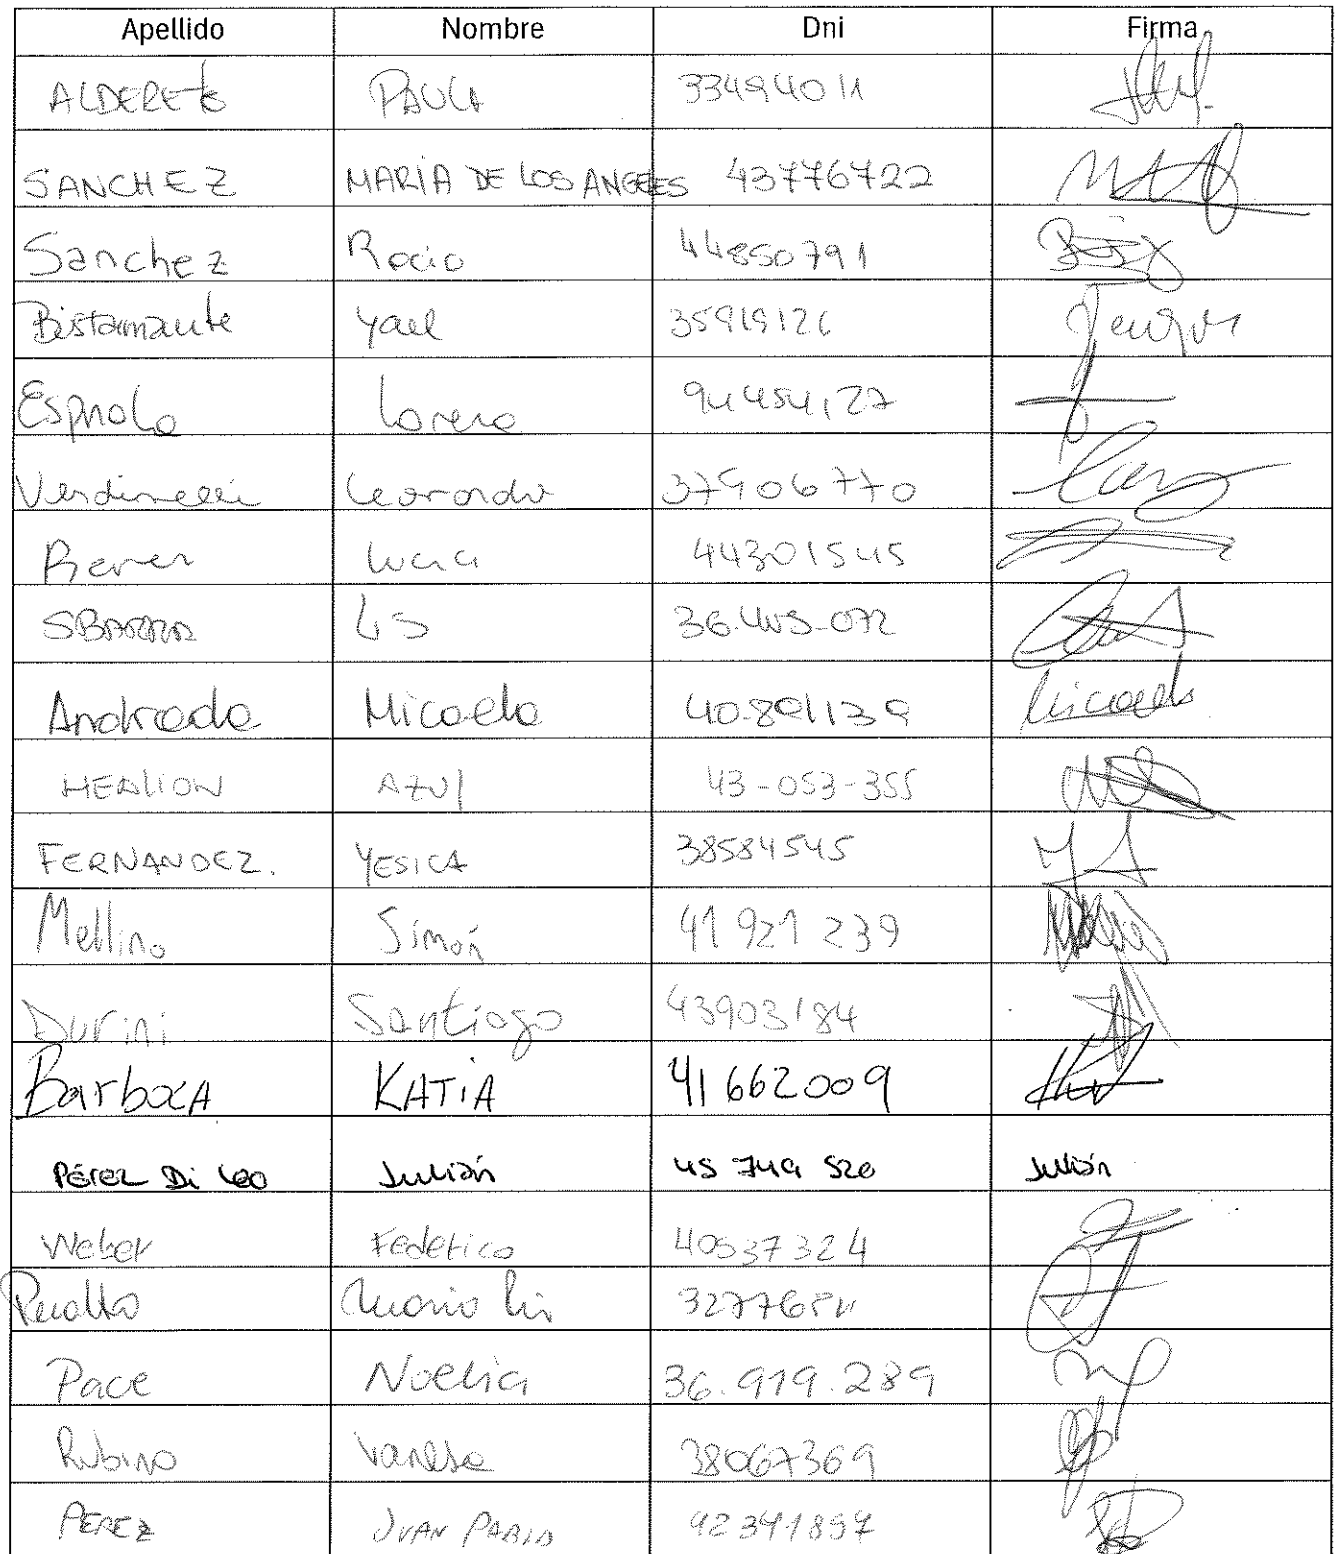 Apellido Nombre Dni Firma
ALDERETE PAULA 33494011
SANCHEZ MARÍA DE LOS ANGELES 43776722
Sanchez Rocio 44850791
Bistamante Yael 35919126
Espnola Lorena 94454127
Verdinelli Leonardo 37906770
Lucia 44301545
SBARRA LIS 36.405-072
Andrada Micaela 40.891139 Micaela
HEALION AZUl 43-053-355
FERNANDEZ. YESICA 38584545
Mellino Simón 41 921 239
Durini Santiago 43903184
BarbozA KATIA 41662009
Pérez Di Leo Julián 45 749 520 Julián
Weber Federico 40537324
Peralta
Pace Noelia 36.919.289
Rubino Vanesa 38067369
PEREZ JUAN PABLO 92341897